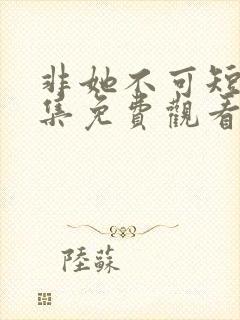 非她不可短
集免費觀看
陸蘇